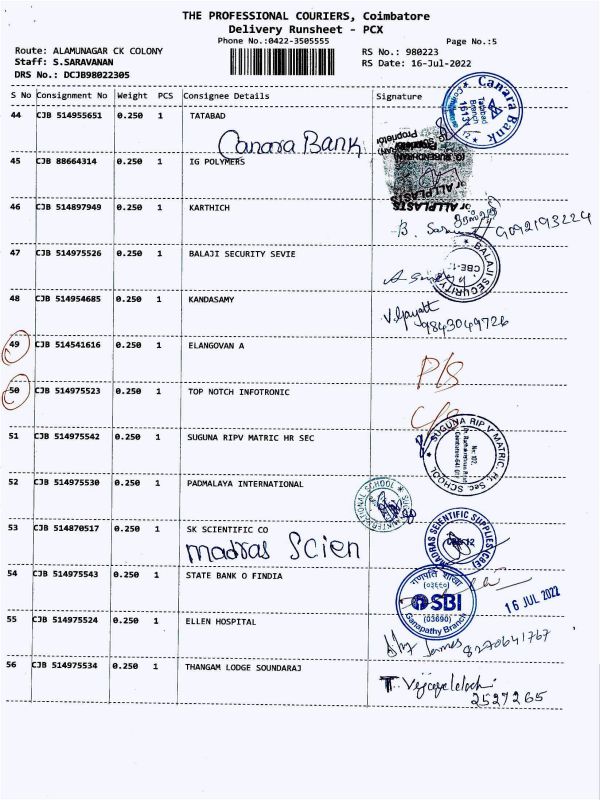 THE PROFESSIONAL COURIERS, Coimbatore
Delivery Runsheet - PCX
Phone No.:0422-3505555
Page No.:5
Route: ALAMUNAGAR CK COLONY
RS No.: 980223
Staff: S.SARAVANAN
RS Date: 16-Jul-2022
DRS No.: DCJB98022305
S No Consignment No Weight PCS Consignee Details Signature
44 CJB 514955651 0.250 1 TATABAD
Canara Bank
Tatabad Branch
Canara Bank
45 CJB 88664314 0.250 1 IG POLYMERS
(G. SURENDHRAN)
Proprietor
For ALLPLASTS
46 CJB 514897949 0.250 1 KARTHICH
9092193224
47 CJB 514975526 0.250 1 BALAJI SECURITY SEVIE
BALAJI SECURITY
48 CJB 514954685 0.250 1 KANDASAMY
9843049726
49 CJB 514541616 0.250 1 ELANGOVAN A
P/S
50 CJB 514975523 0.250 1 TOP NOTCH INFOTRONIC
C/S
51 CJB 514975542 0.250 1 SUGUNA RIPV MATRIC HR SEC
SUGUNA RIP V MATRIC. Hr. Sec. SCHOOL
52 CJB 514975530 0.250 1 PADMALAYA INTERNATIONAL
INTERNATIONAL SCHOOL
53 CJB 514870517 0.250 1 SK SCIENTIFIC CO
Madras Scien
MADRAS SCIENTIFIC SUPPLIES (CBE)
54 CJB 514975543 0.250 1 STATE BANK O FINDIA
गणपति शाखा
(०३६९०)
SBI
(03690)
Ganapathy Branch
16 JUL 2022
55 CJB 514975524 0.250 1 ELLEN HOSPITAL
James 8270641767
56 CJB 514975534 0.250 1 THANGAM LODGE SOUNDARAJ
2527265